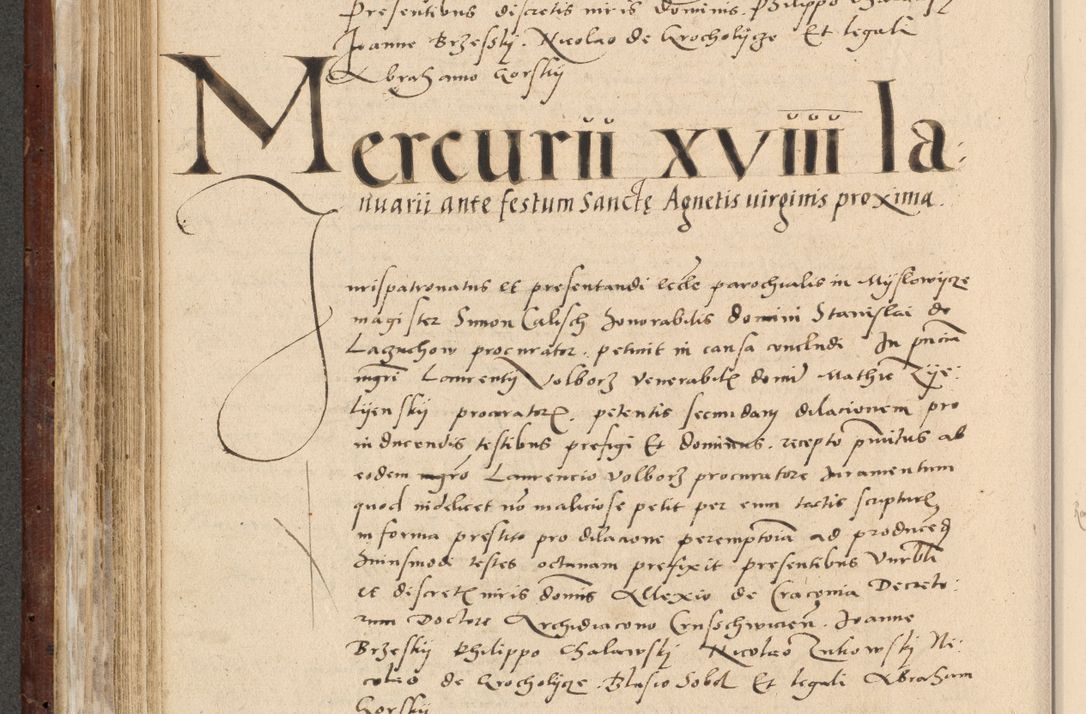 Presentibus discretis viris dominis. Philippo
Joanne Brzeskij. Nicolao de Grocholijcze Et legali
Abrahamo Gorskij
Mercurii xviiii Ia
nuarii ante festum Sanctę Agnetis virginis proxima.
Jurispatronatus et presentandi eccle parochialis in Mijslowijcze
magister Simon Calisch honorabilis domini Stanislai de
Laguchow procurator. petiuit in causa concludi In pncia
mgri Laurentij Volborz venerabilis domi Mathie
lijenskij procuratoris. petentis secundam dilacionem pro
inducendis testibus prefigi Et dominus. recepto primitus ab
eodem mgro Laurencio Volborz procuratore Juramentum
quod videlicet no maliciose petit per eum tactis scripturis
in forma prestito pro dilacione peremptoria ad producend
huiusmodi testes octauam prefixit presentibus
et discretis viris domis Allexio de Craconia Decreto
rum Doctore Archidiacono Cruschwicien. Joanne
Brzeskij Philippo Chalawskj Nicolao Zukowskj Ni
colao de Grocholijcze. Blasio Sobol Et legali Abraham
Gorskij